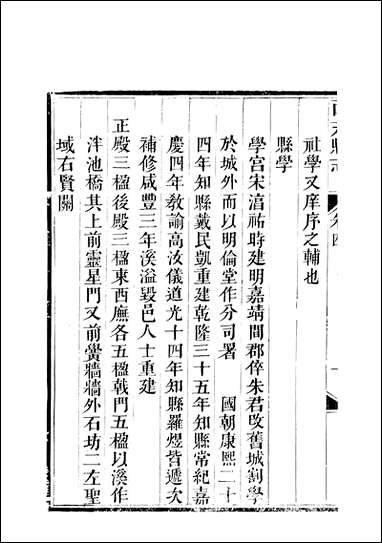 社學又庠序之輔也
縣學
學宮宋淯祐時建明嘉靖間郡倅朱君改舊城剏學
於城外而以明倫堂作分司署　　國朝康熙二十
四年知縣戴民凱重建乾隆三十五年知縣常紀嘉
慶四年敎諭高汝儀道光十四年知縣羅煜皆遞次
補修咸豐三年溪溢毀邑人士重建
正殿三楹後殿三楹東西廡各五楹戟門五楹以溪作
泮池橋其上前靈星門又前黌牆牆外石坊二左聖
域右賢關